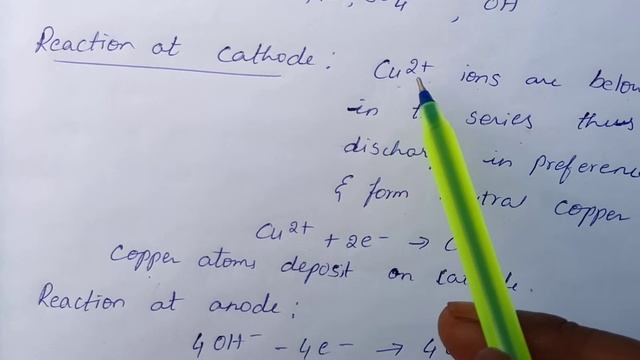 4 , OH
Reaction at Cathode : Cu²⁺ ions are below
in series thus
in preferen
& form copper
Cu²⁺ + 2e⁻ →
Copper atoms deposit on
Reaction at anode :
4OH⁻ - 4e⁻ → 4